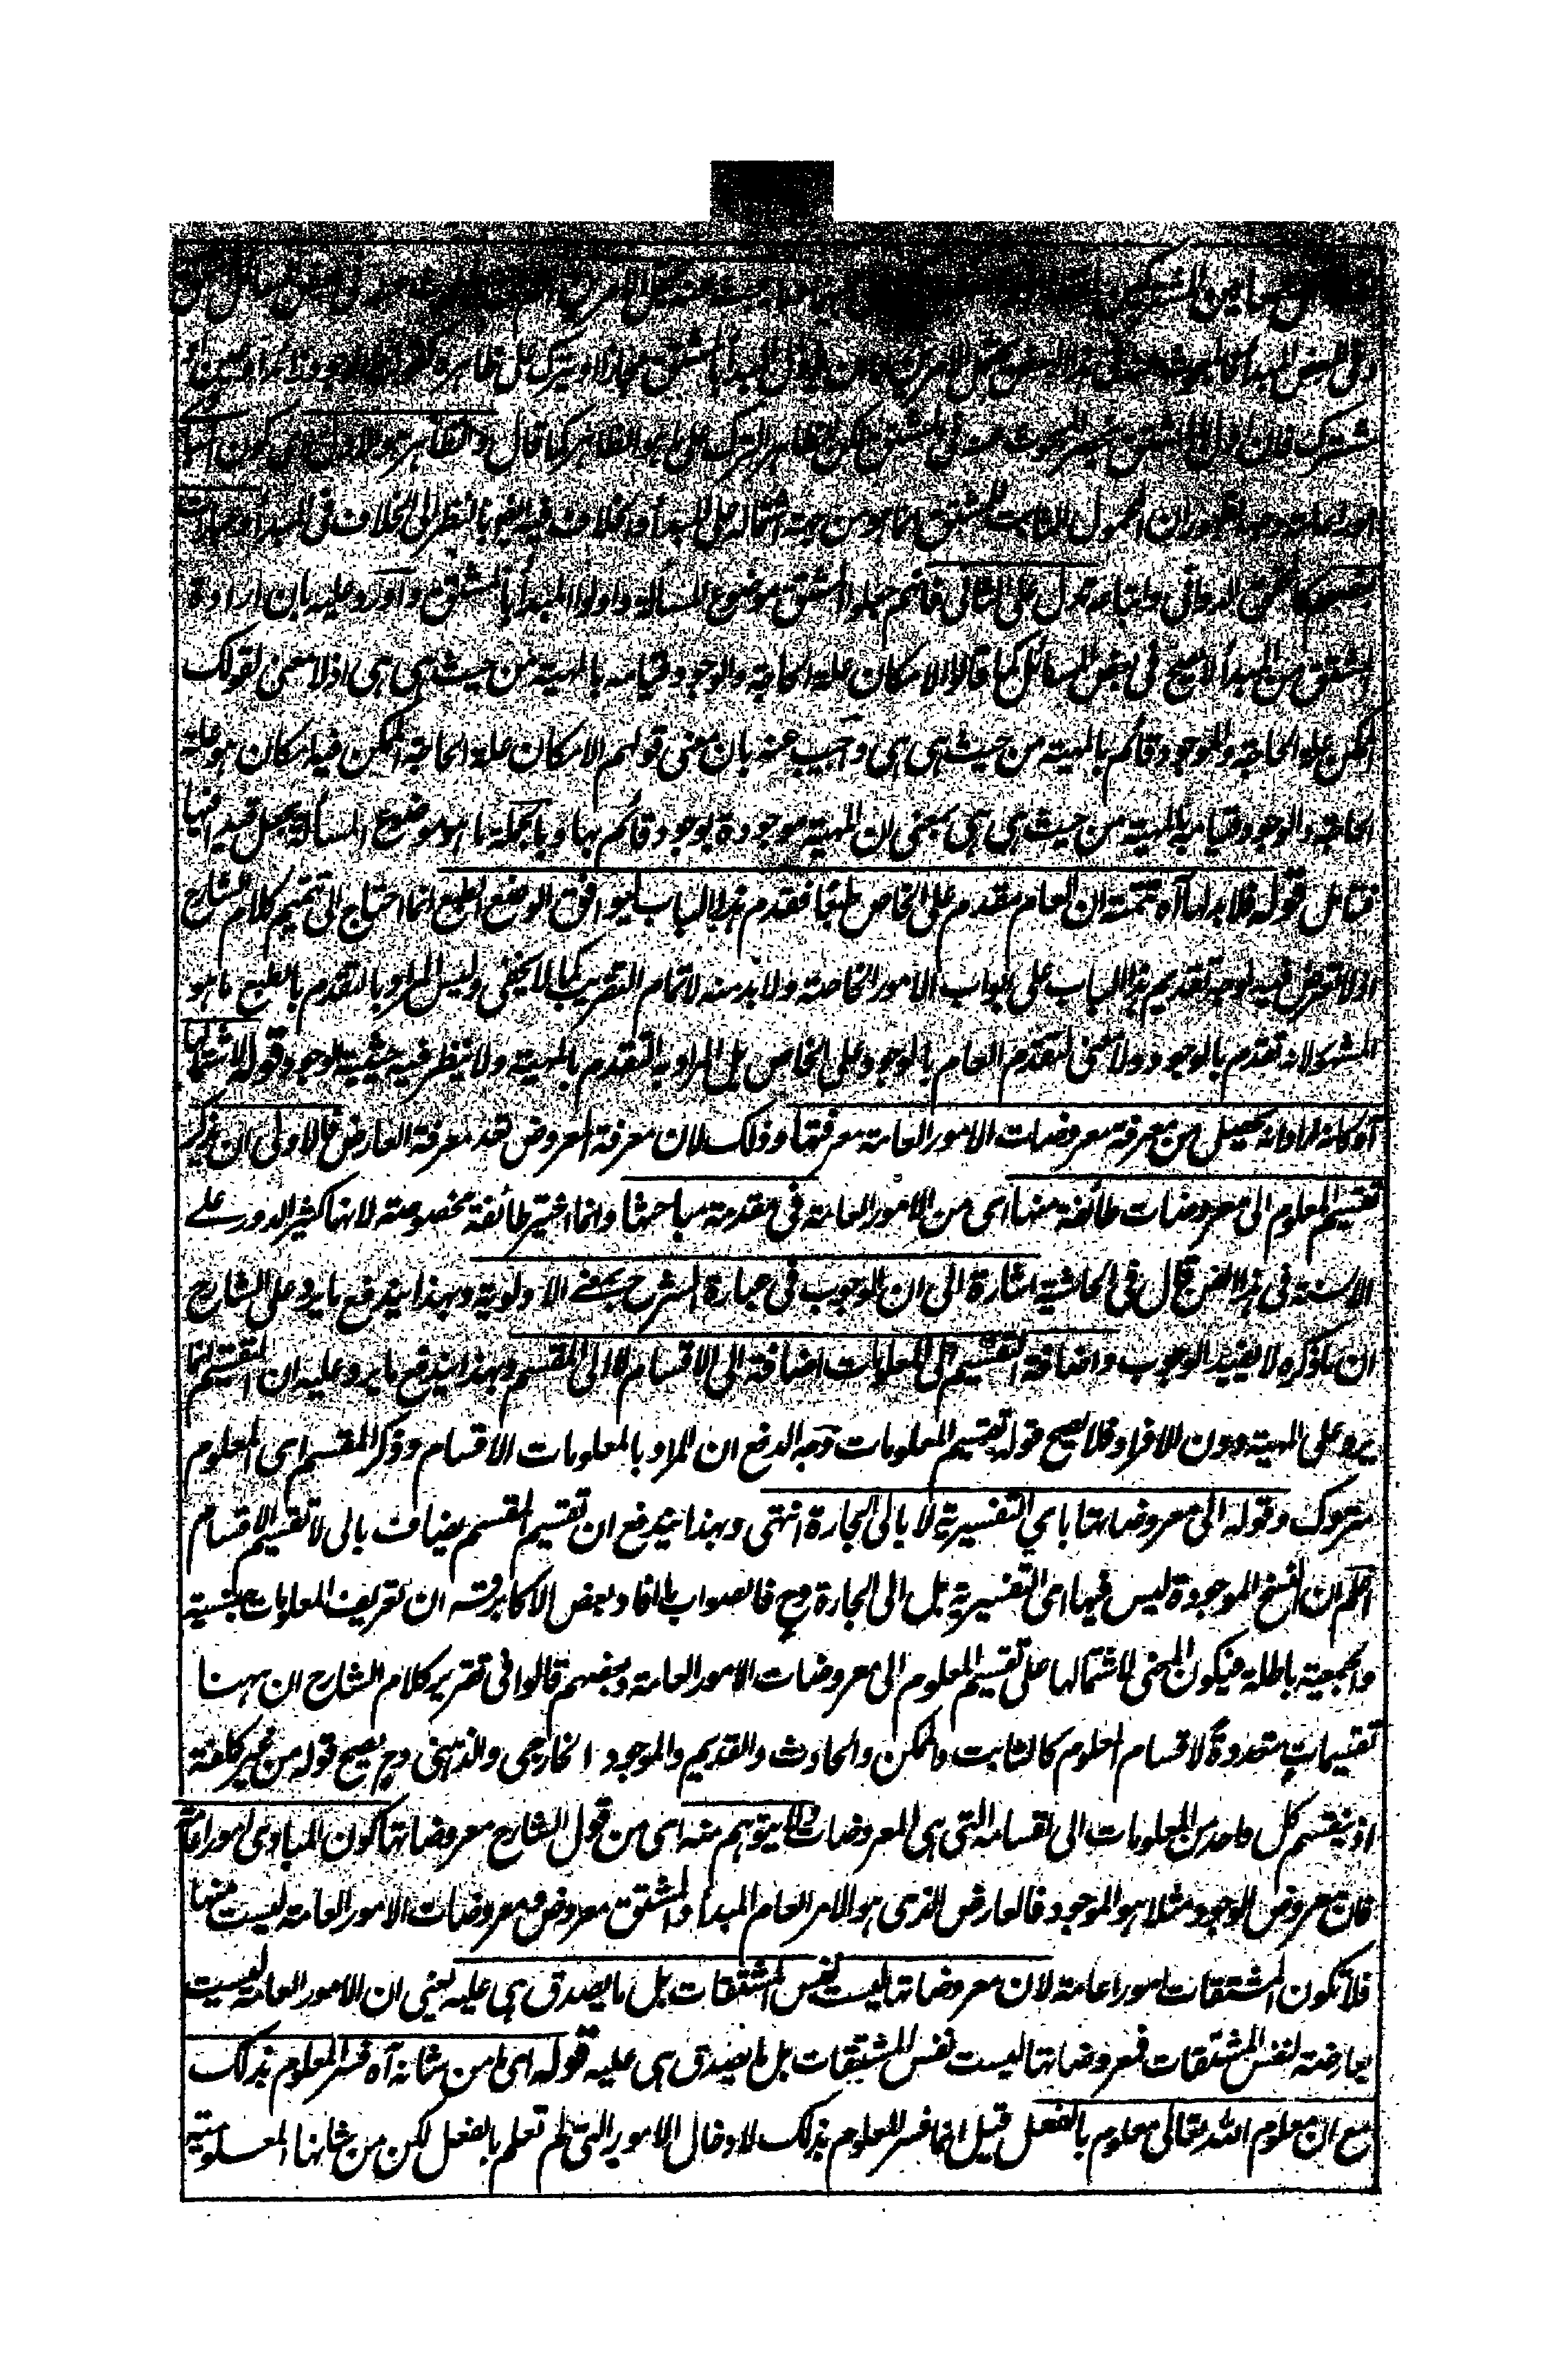 مشترك فان اول المشتق
امورا عامة وجه الظهور ان المحمول الثابت للمشتق انما هو من جهة اشتماله على المبدأ والخلاف فيه ايضا بالنظر الى الخلاف في المبدأ وعبارات
بعضهم كالمحقق الدواني واتباعه تدل على الثاني فانهم جعلوا المشتق موضوع المسألة واولوا المبدأ بالمشتق واورد عليه بان ارادة
المشتق من المبدأ لا يصح في بعض المسائل كما قالوا الامكان علة الحاجة والوجود قيامه بالمهية من حيث هي هي اذ لا معنى لقولك
الممكن علة الحاجة والموجود قائم بالمهية من حيث هي هي واجيب عنه بان معنى قولهم الامكان علة الحاجة الممكن فيه امكان هو علة
الحاجة والوجود قيامه بالمهية من حيث هي هي بمعنى ان المهية موجودة بوجود قائم بها وبالجملة ما هو موضوع المسألة يجعل قيدا فيها
فتامل قوله فلا بد اما آه تتمته ان العام مقدم على الخاص طبعا فقدم هذا الباب ليوافق الوضع الطبع انما احتاج الى تتميم كلام الشارح
اذ لا تعرض فيه لوجه تقديم هذا الباب على ابواب الامور الخاصة ولا بد منه لاتمام التقريب كما لا يخفى وليس المراد بالتقدم بالطبع ما هو
المشهور لانه تقدم بالوجود ولا معنى لتقدم العام بالوجود على الخاص بل المراد به التقدم بالمهية ولا ينظر فيه حيثية الوجود قوله لاشتمالها
آه كانه اراد انه يحصل من معرفة معروضات الامور العامة معرفتها وذلك لان معرفة المعروض تفيد معرفة العارض فالاولى ان يذكر
تقسيم المعلوم الى معروضات طائفة منها اى من الامور العامة في مقدمة مباحثها وانما اختير طائفة مخصوصة لانها كثير الدور على
الالسنة في هذا الفن قال في الحاشية اشارة الى ان الوجوب في عبارة الشرح بمعنے الاولوية وبهذا يندفع ما يرد على الشارح
ان ما ذكره لا يفيد الوجوب واضافة التقسيم الى المعلومات اضافة الى الاقسام لا الى المقسم وبهذا يندفع ما يرد عليه ان التقسيم انما
يرد على المهية دون الافراد فلا يصح قوله تقسيم المعلومات وجه الدفع ان المراد بالمعلومات الاقسام وذكر المقسم اى المعلوم
متروك وقوله الى معروضاتها باي التفسيرية لا بالى الجارة انتهى وبهذا يندفع ان تقسيم المقسم يضاف بالى لا تقسيم الاقسام
اعلم ان النسخ الموجودة ليس فيها اى التفسيرية بل الى الجارة وح فالصواب ما افاد بعض الاكابر قده ان تعريف المعلومات بجنسية
والجمعية باطلة فيكون المعنى لاشتمالها على تقسيم المعلوم الى معروضات الامور العامة وبعضهم قالوا في تقرير كلام الشارح ان ههنا
تقسيمات متعددة لاقسام المعلوم كالثابت والممكن والحادث والقديم والموجود الخارجي والذهني وح يصح قوله من غير كلفة
اذ ينقسم كل واحد من المعلومات الى اقسامه التي هي المعروضات قوله لا يتوهم منه اى من قول الشارح معروضاتها كون المبادى امورا عامة
فان معروض الوجود مثلا هو الموجود فالعارض الذى هو الامر العام المبدأ والمشتق معروض ومعروضات الامور العامة ليست منها
فلا تكون المشتقات امورا عامة لان معروضاتها ليست نفس المشتقات بل ما يصدق هي عليه يعنى ان الامور العامة ليست
بعارضة لنفس المشتقات فمعروضاتها ليست نفس المشتقات بل ما يصدق هى عليه قوله اى ما من شانه آه فسر المعلوم بذلك
مع ان معلوم الله تعالى معلوم بالفعل قيل انما فسر المعلوم بذلك لادخال الامور التى لم تعلم بالفعل لكن من شانها المعلومية